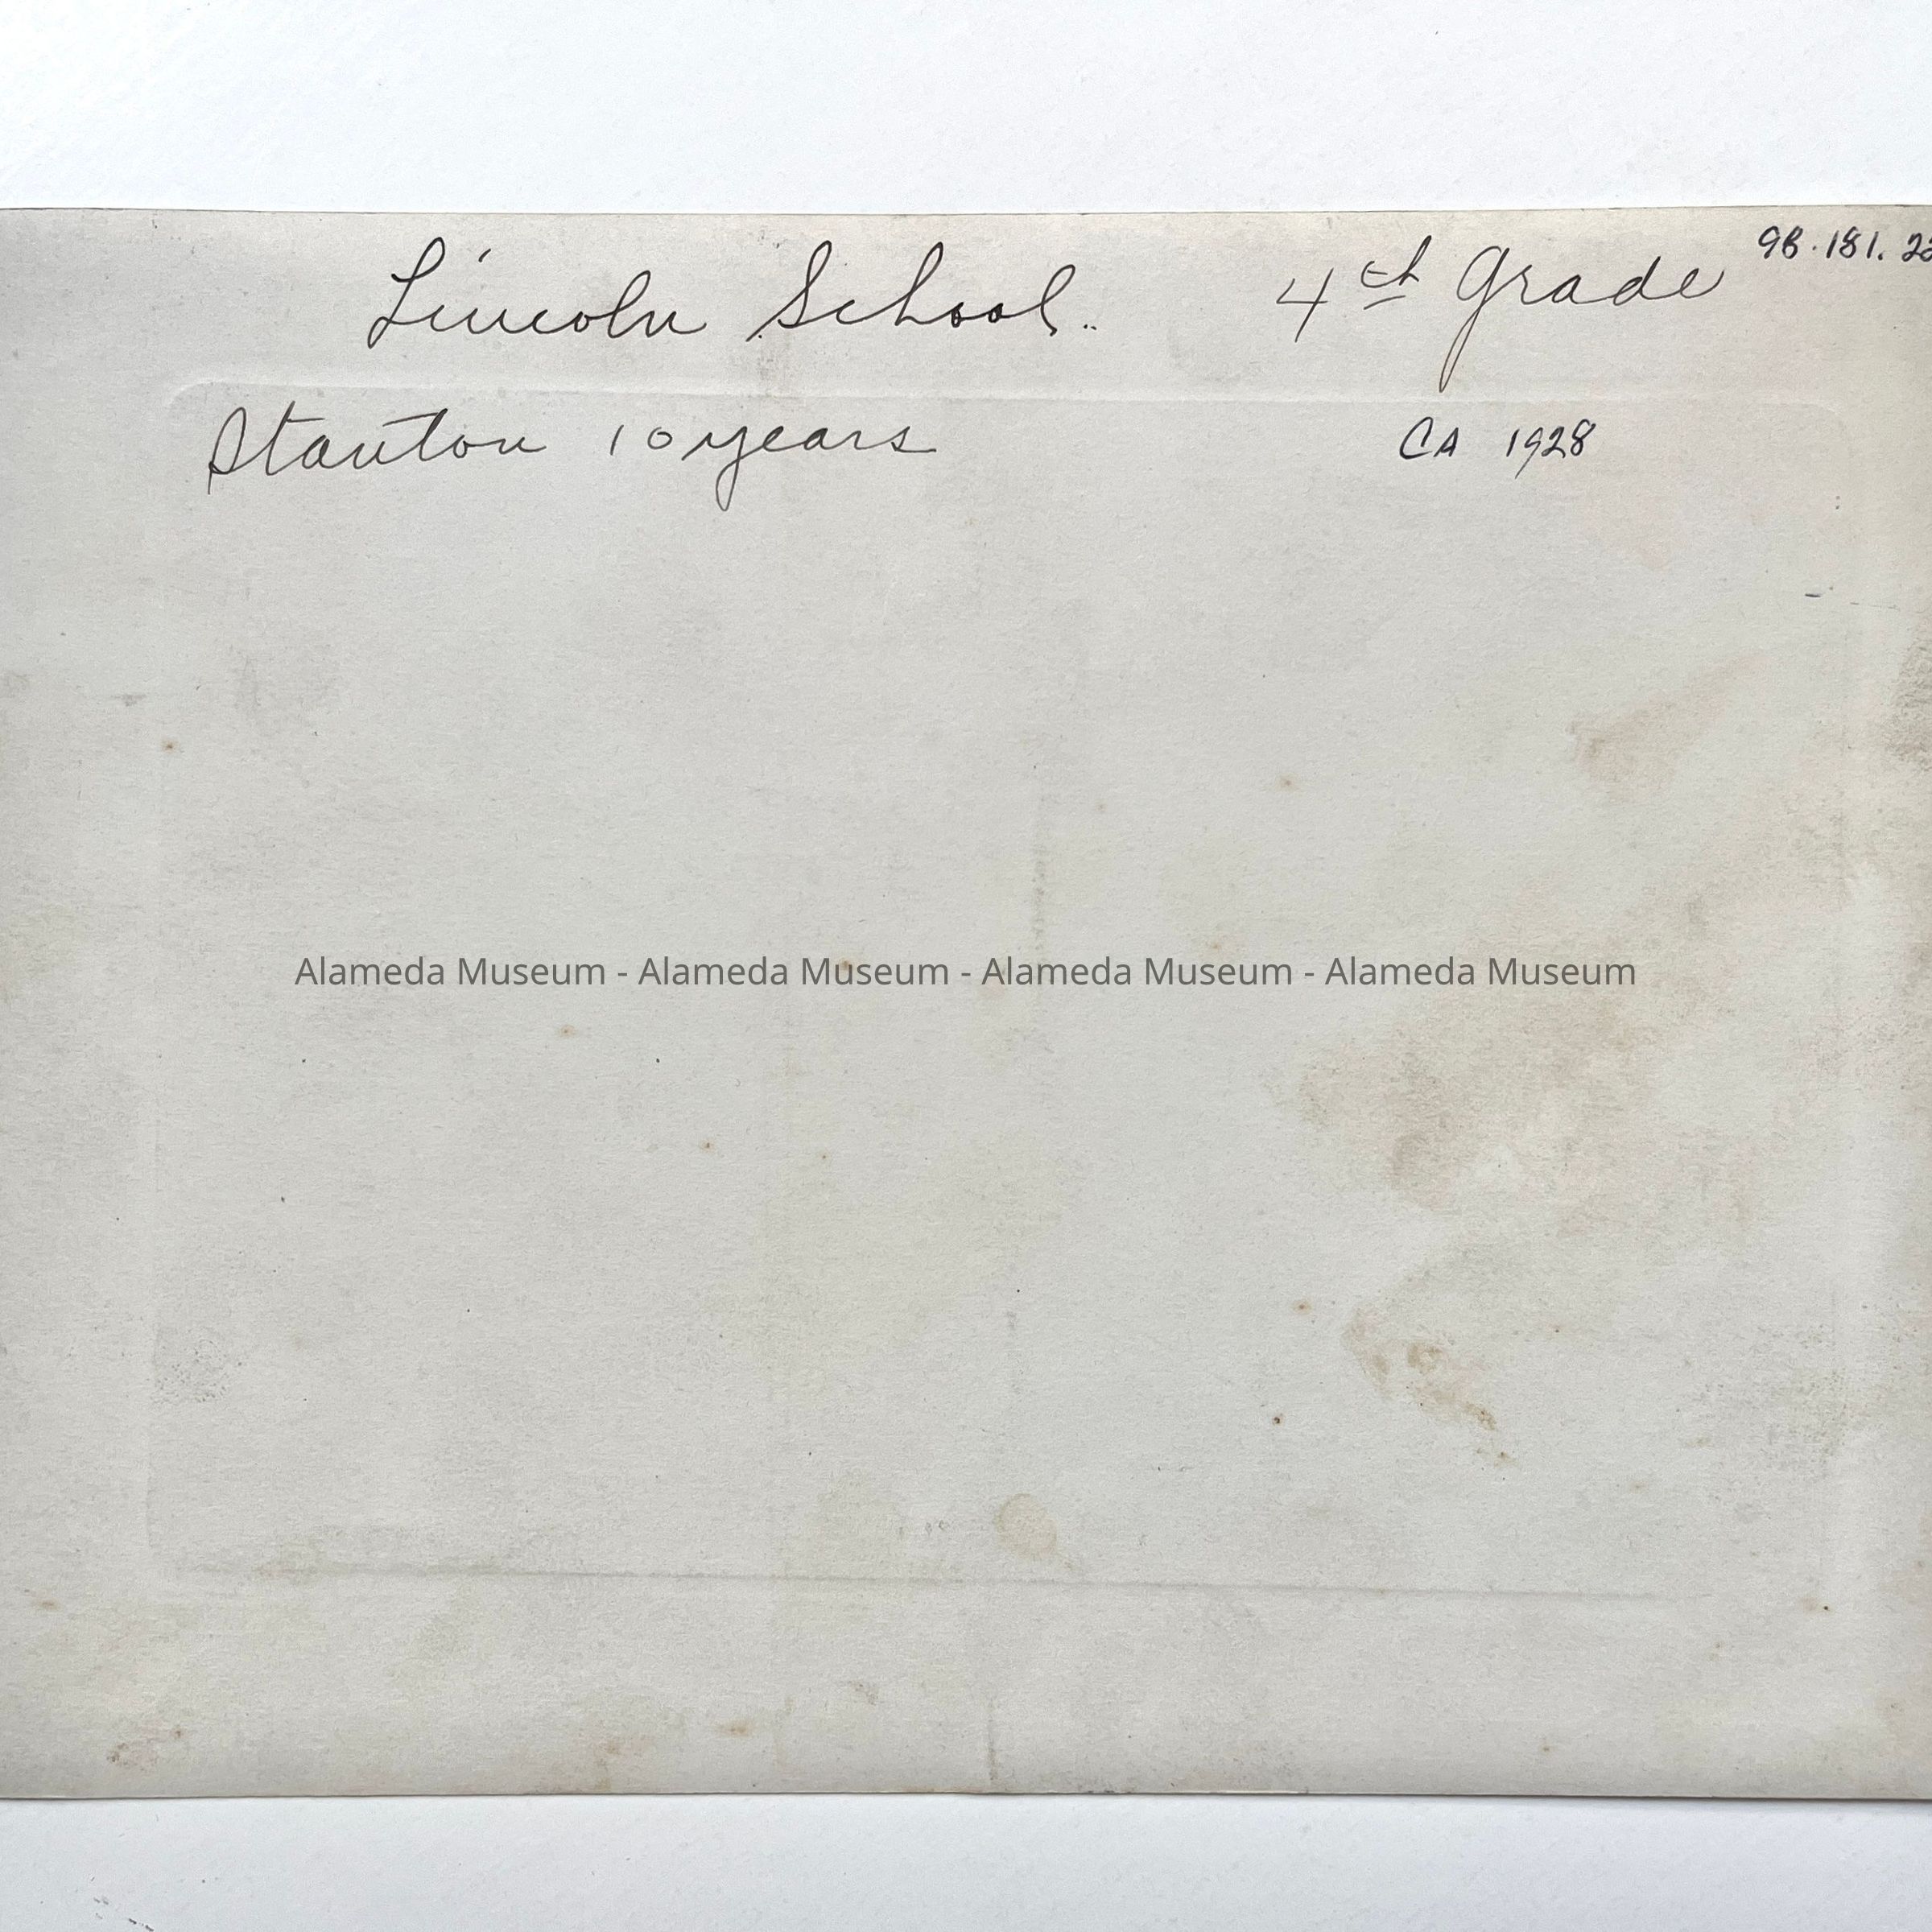 Lincoln School. 4th Grade 98.181.22
Stanton 10 years CA 1928
Alameda Museum - Alameda Museum - Alameda Museum - Alameda Museum